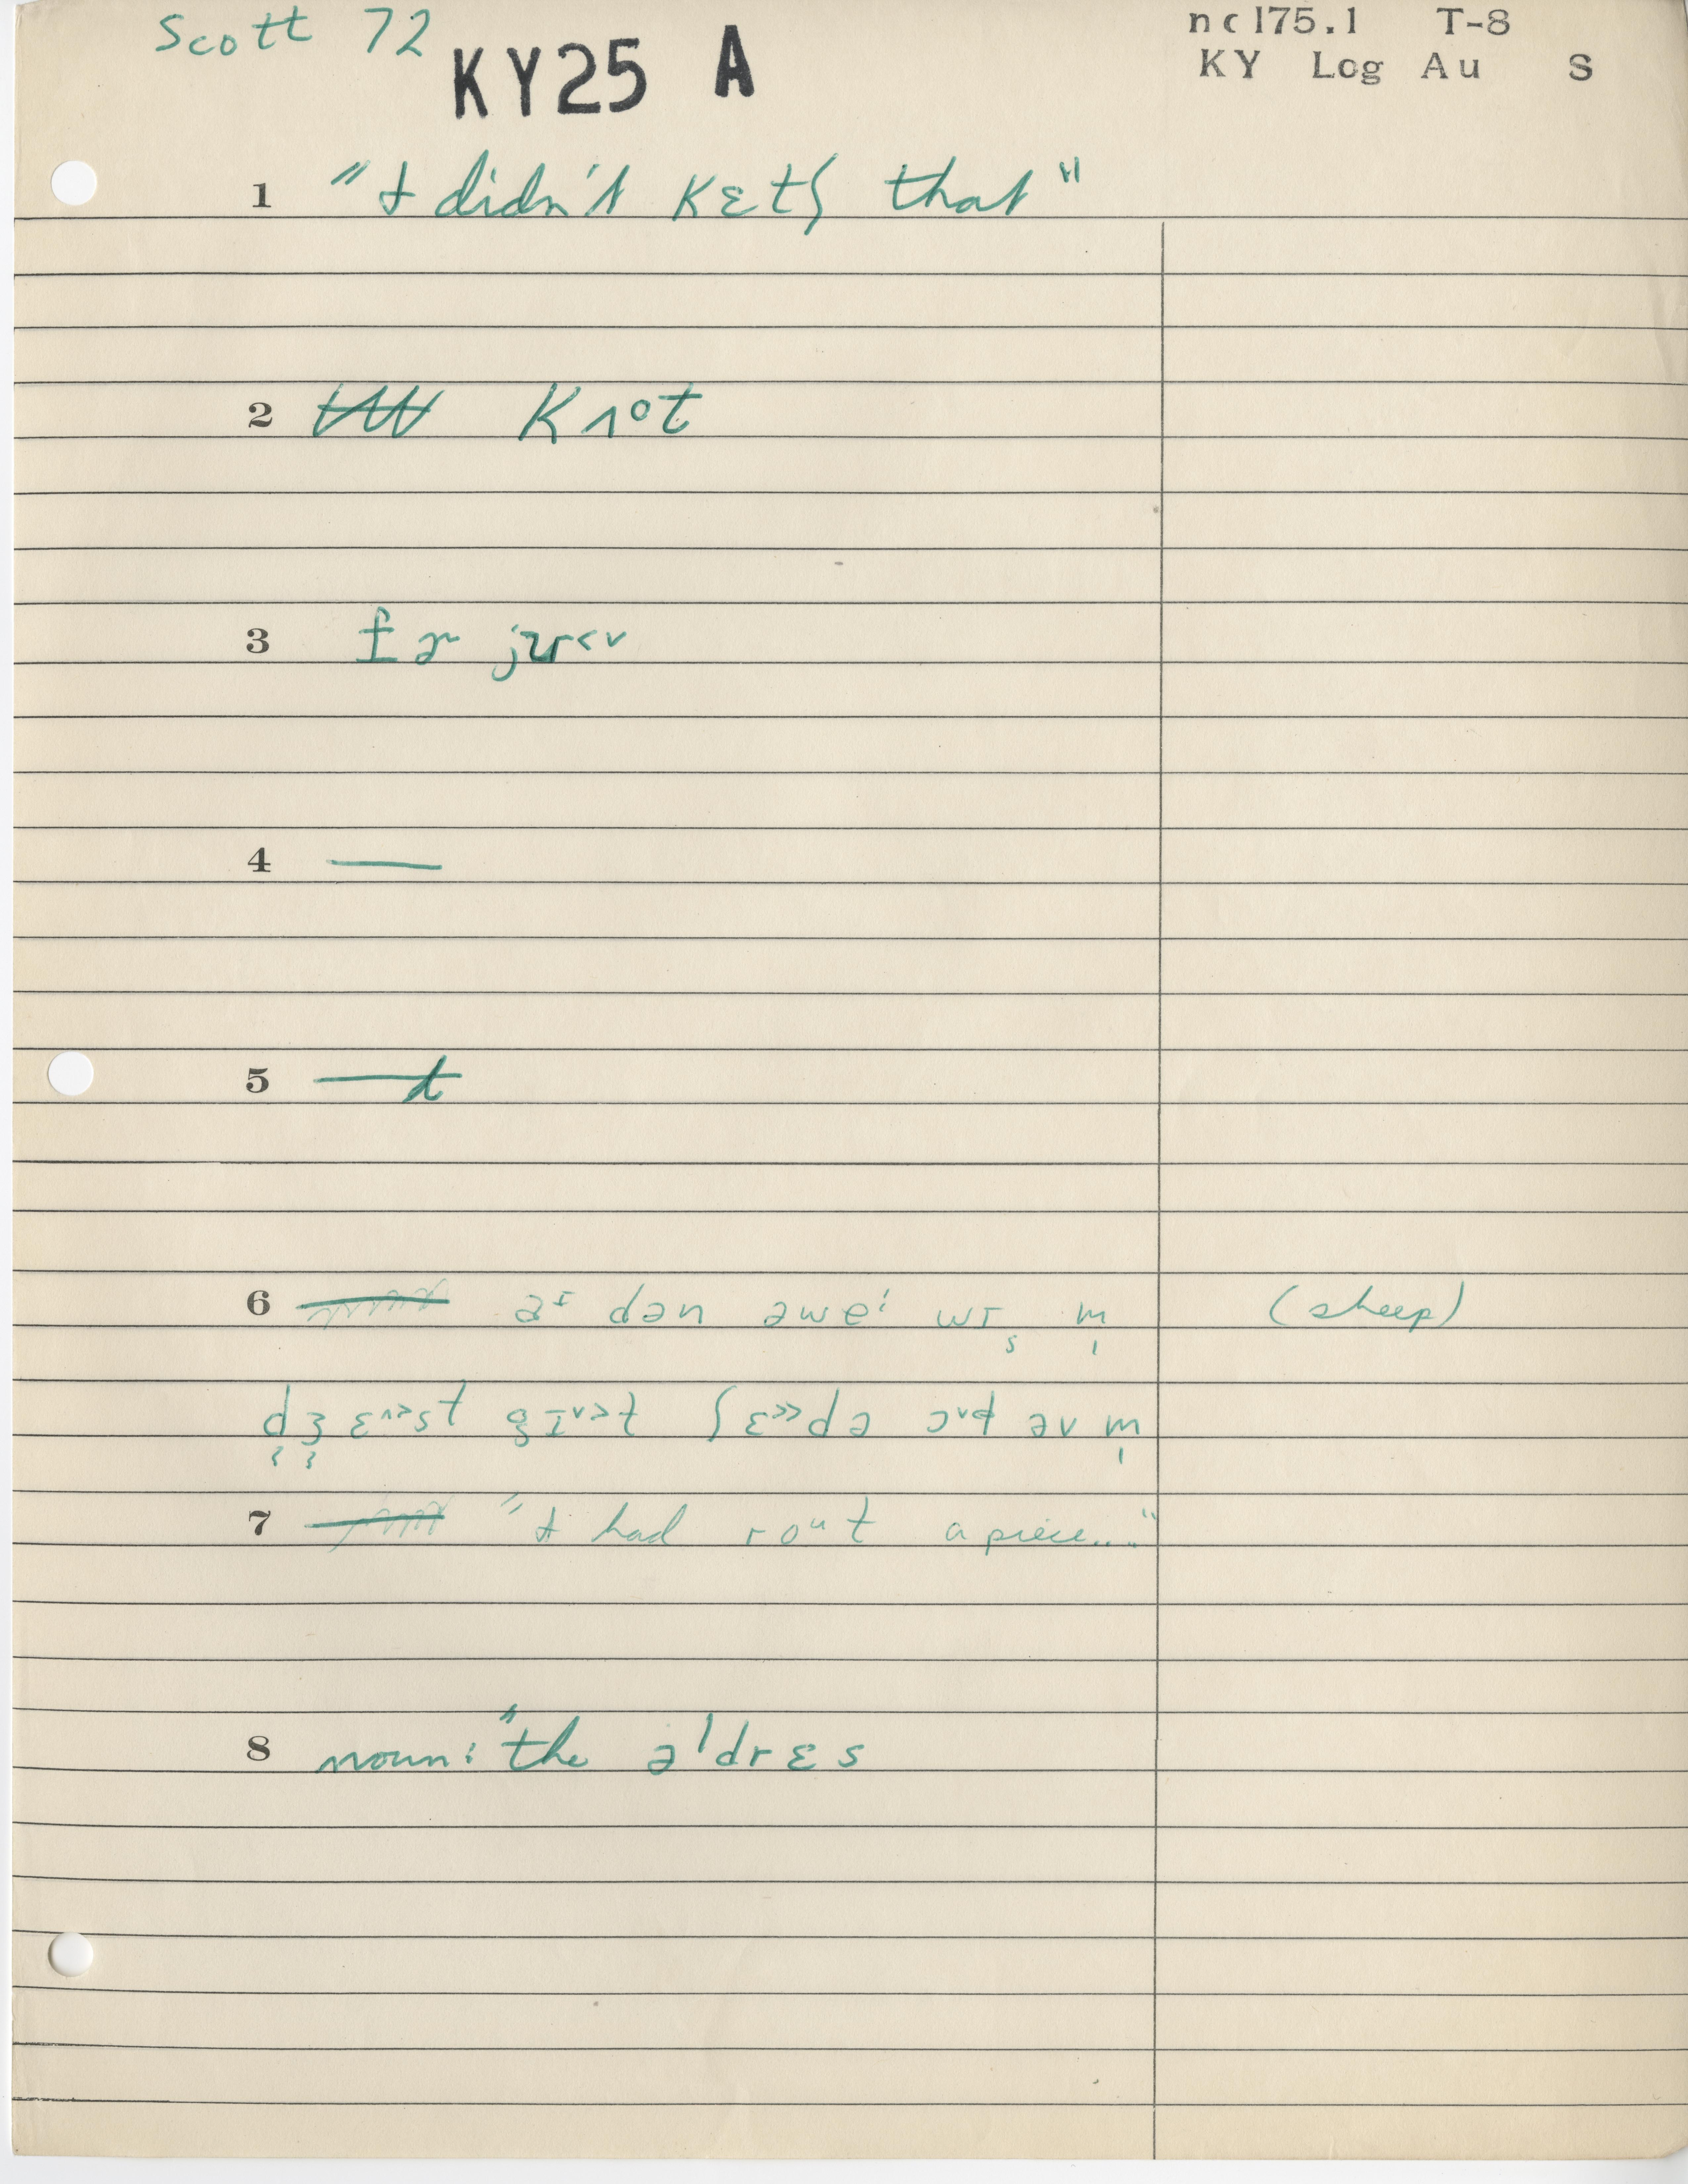 Scott 72 KY25 A nc175.1 T-8
KY Log Au S
1 "I didn't kɛtʃ that"
2 K n o t
3 fɚ
4 —
5
6 aɪ dən əwe wɪ m̩ (sheep)
dʒ ɛ^>st gɪ^v<t ʃɛ>>də əv m̩
7 "I had roᵘt a piece..."
8 noun: "the əˈdrɛs